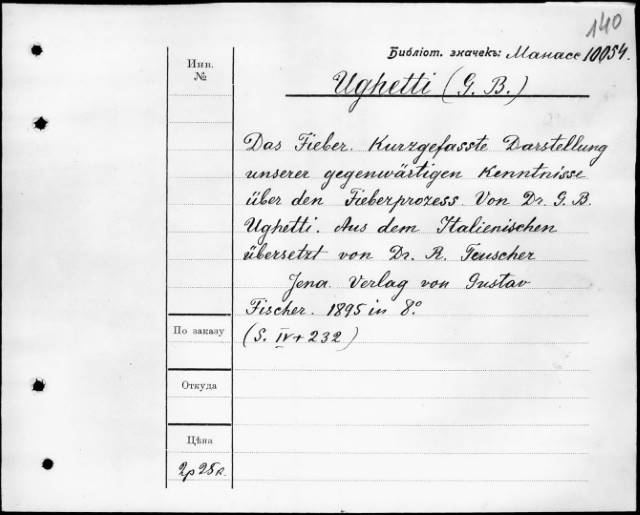 140
Библіот. значекъ: Манасс 10054.
Инв.
№
Ughetti (G. B.)
Das Fieber. Kurzgefasste Darstellung
unserer gegenwärtigen Kenntnisse
über den Fieberprozess. Von Dr. G. B.
Ughetti. Aus dem Italienischen
übersetzt von Dr. R. Teuscher
Jena. Verlag von Gustav
Fischer. 1895 in 8°
(S. IV + 232)
По заказу
Откуда
Цѣна
2р 25к.